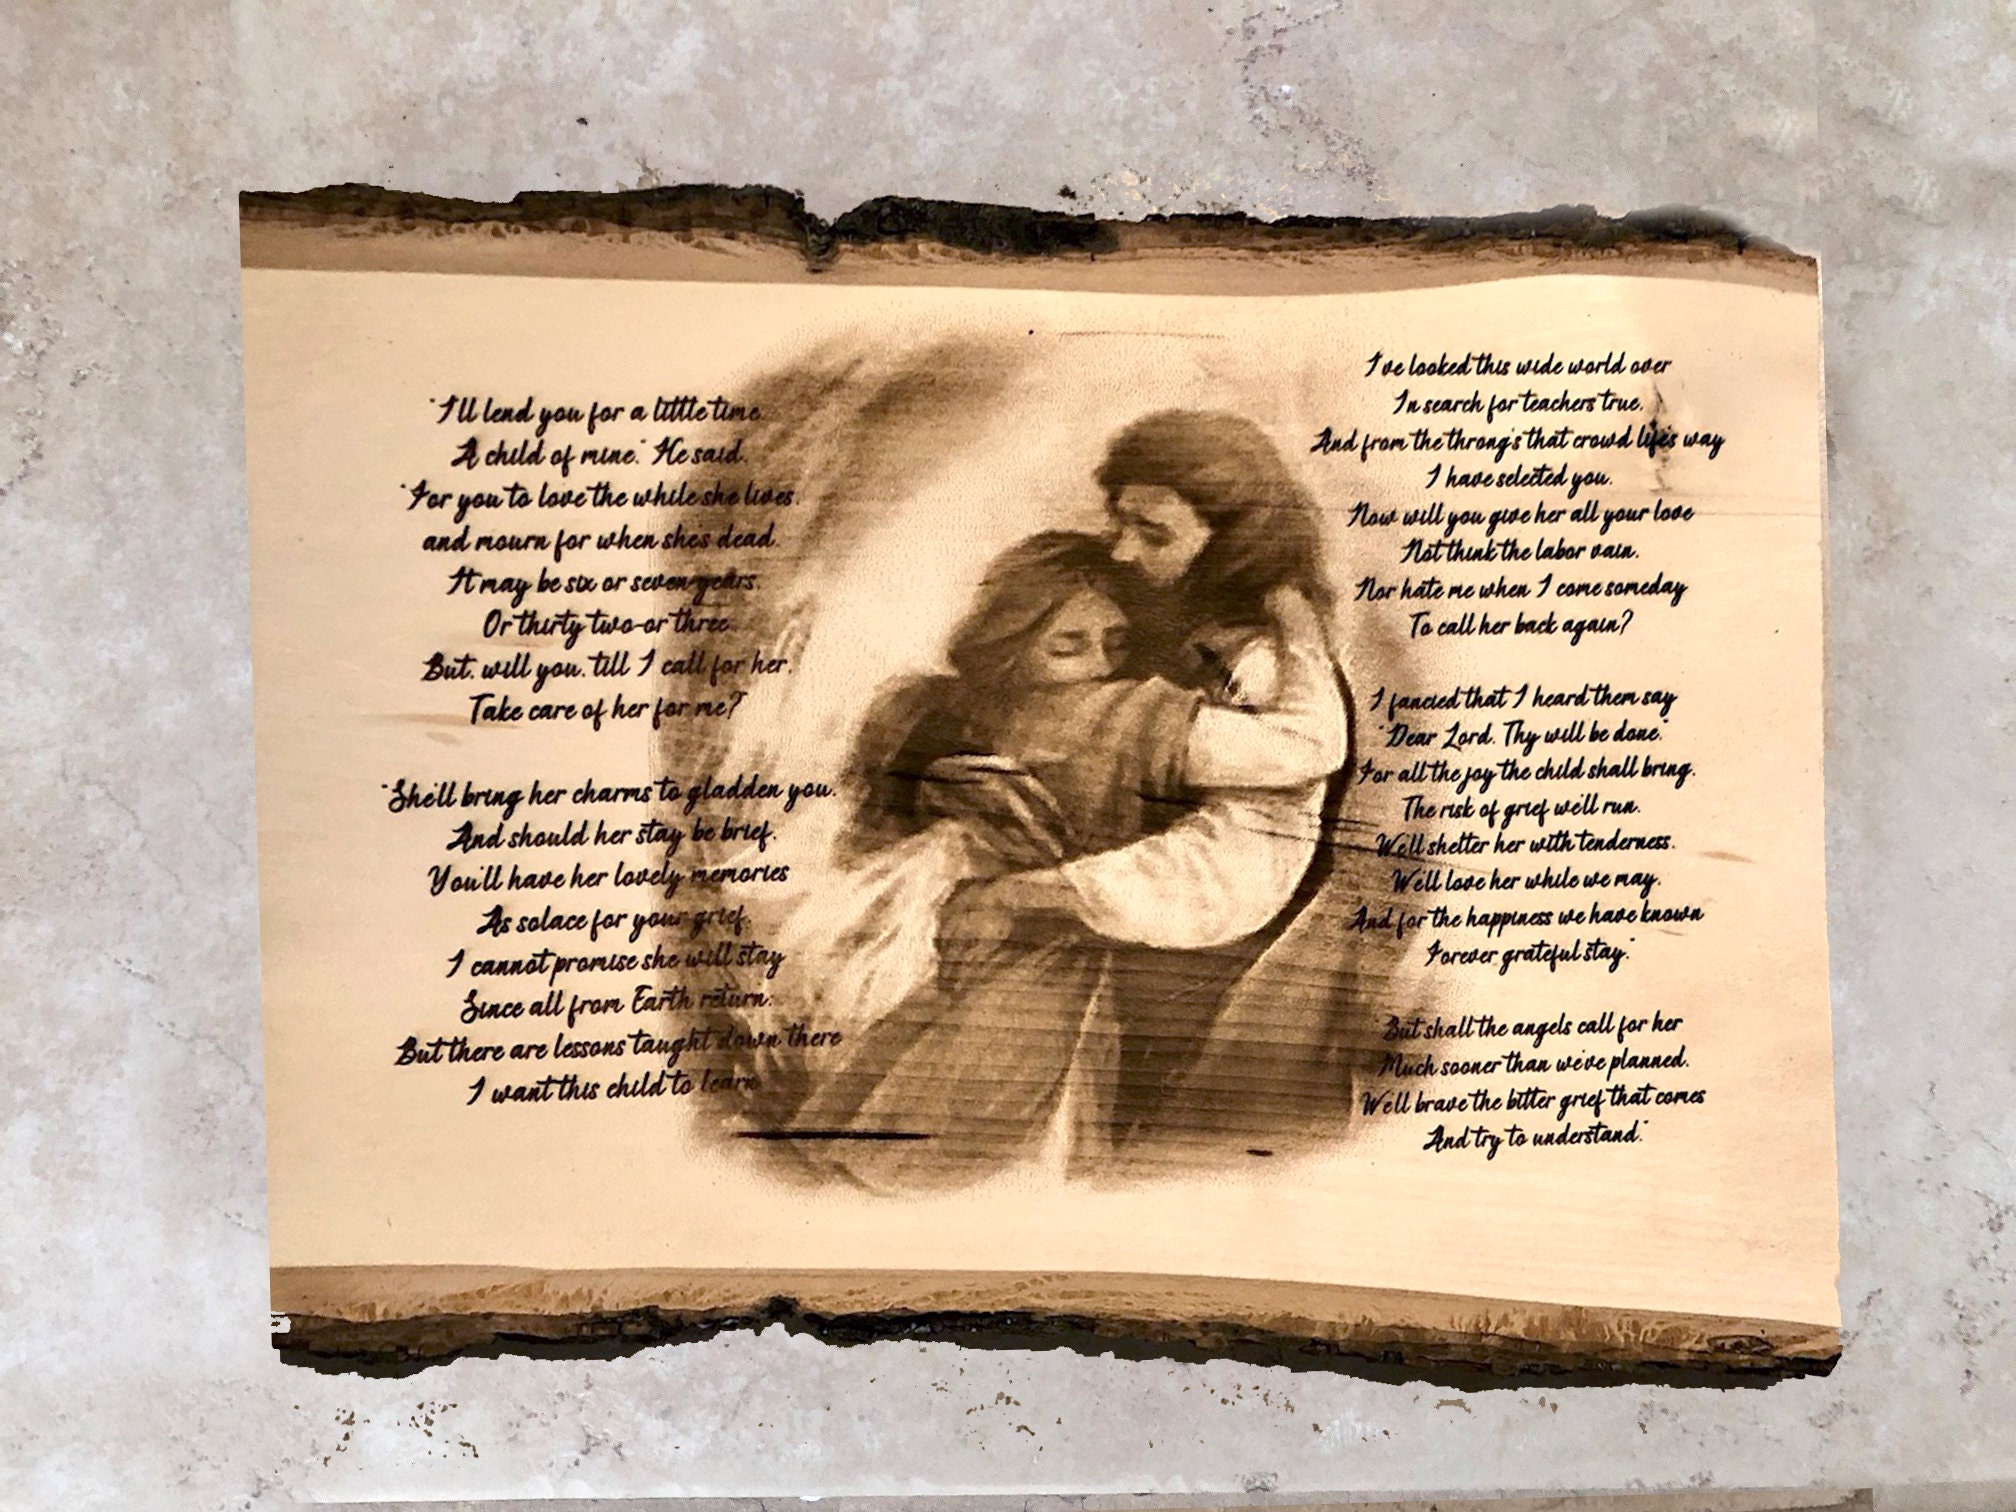 "I'll lend you for a little time,
A child of mine," He said.
"For you to love the while she lives,
and mourn for when she's dead.
It may be six or seven years,
Or thirty two or three
But, will you, till I call for her,
Take care of her for me?
"She'll bring her charms to gladden you,
And should her stay be brief,
You'll have her lovely memories
As solace for your grief.
I cannot promise she will stay
Since all from Earth return;
But there are lessons taught down there
I want this child to learn
I've looked this wide world over
In search for teachers true,
And from the throng's that crowd life's way
I have selected you.
Now will you give her all your love
Not think the labor vain,
Nor hate me when I come someday
To call her back again?
I fancied that I heard them say
"Dear Lord, Thy will be done,"
For all the joy the child shall bring,
The risk of grief we'll run.
We'll shelter her with tenderness,
We'll love her while we may,
And for the happiness we have known
Forever grateful stay."
"But shall the angels call for her
Much sooner than we've planned,
We'll brave the bitter grief that comes
And try to understand."